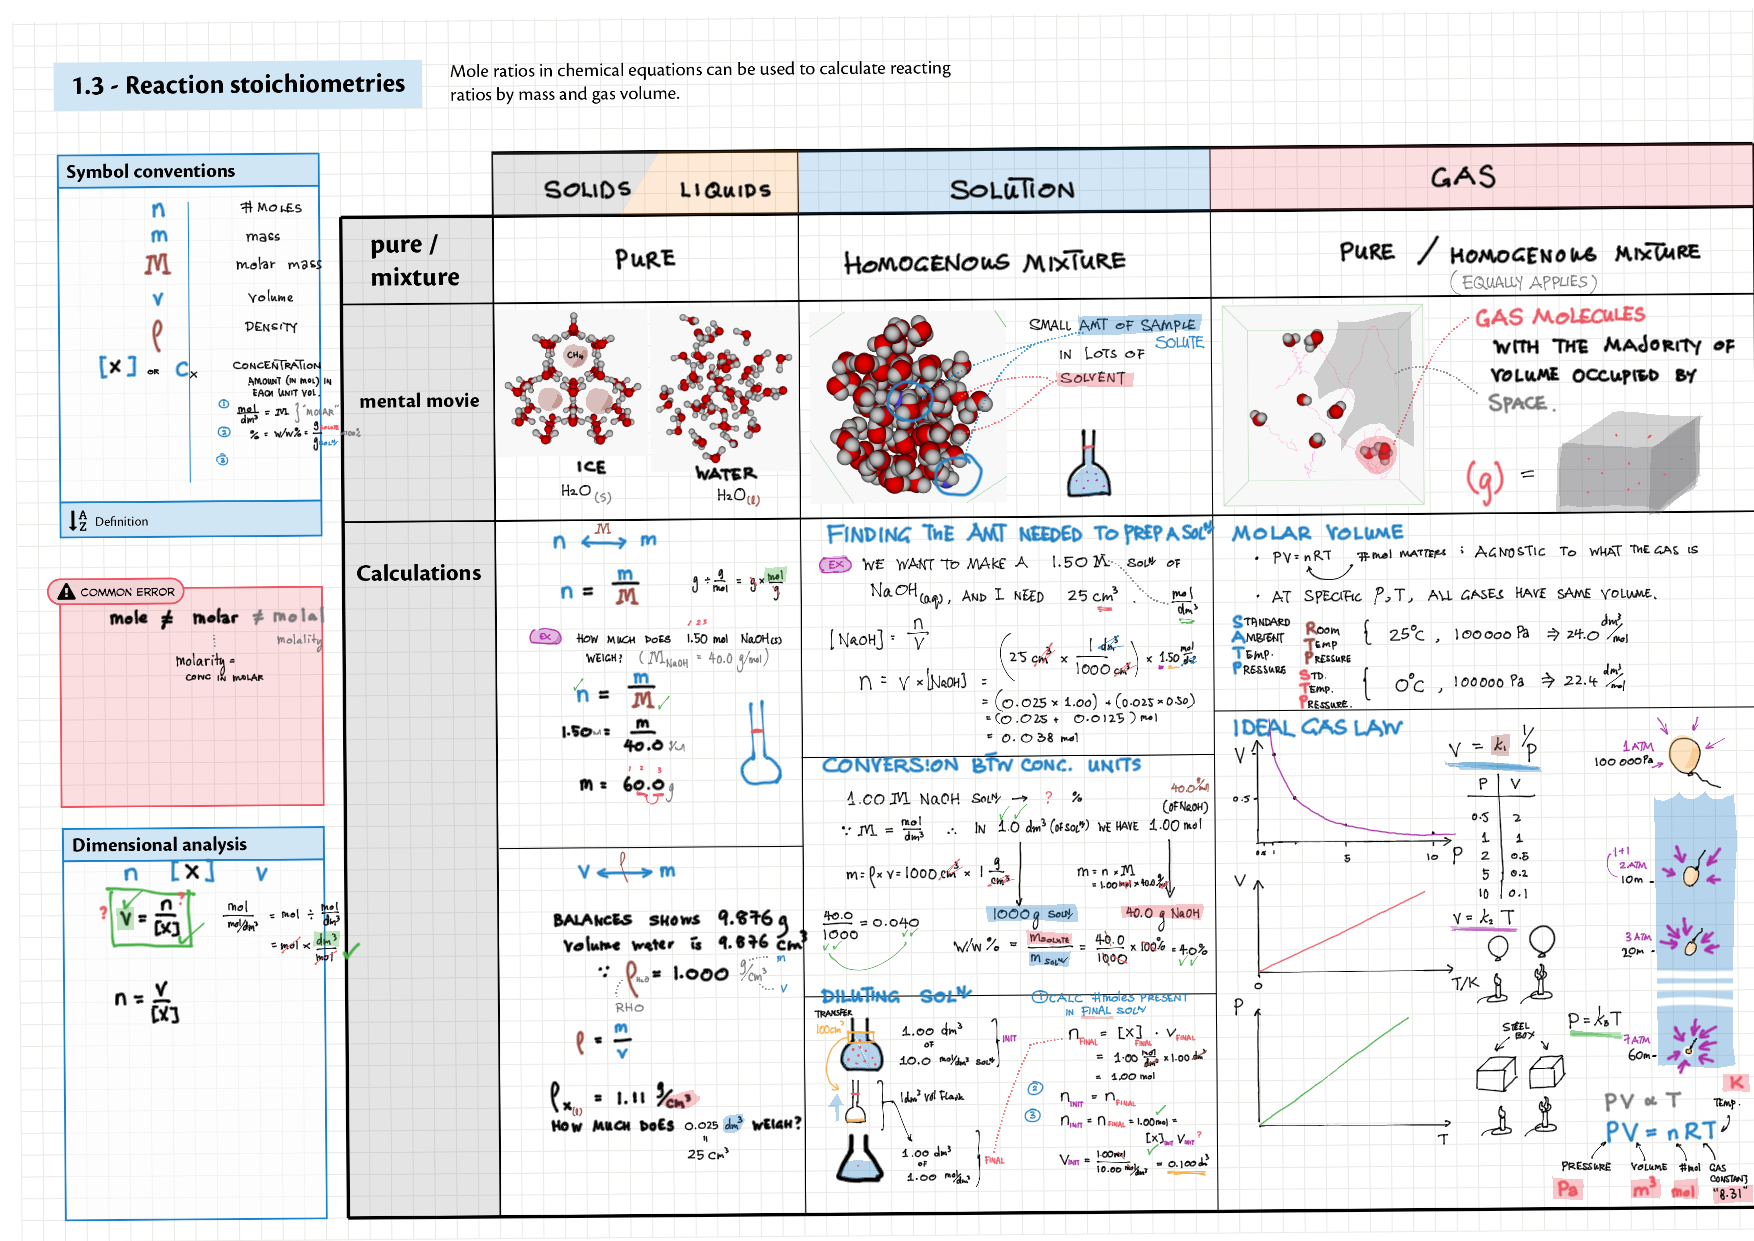 1.3 - Reaction stoichiometries
Mole ratios in chemical equations can be used to calculate reacting
ratios by mass and gas volume.
Symbol conventions
n # MOLES
m mass
M molar mass
v volume
ρ DENSITY
[X] OR Cx CONCENTRATION
AMOUNT (IN MOL) IN
EACH UNIT VOL.
① mol/dm³ = M } "MOLAR"
② % = W/W% = g solute/g soln × 100%
③
↓A Z Definition
COMMON ERROR
mole ≠ molar ≠ molal
molality
molarity =
CONC IN MOLAR
Dimensional analysis
n [X] v
? v = n/[X] ? mol/mol/dm³ = mol ÷ mol/dm³
= mol × dm³/mol
n = v/[X]
SOLIDS LIQUIDS
SOLUTION
GAS
pure /
mixture
PURE
HOMOGENOUS MIXTURE
PURE / HOMOGENOUS MIXTURE
(EQUALLY APPLIES)
mental movie
CH4
ICE
H2O (s)
WATER
H2O (l)
SMALL AMT OF SAMPLE
SOLUTE
IN LOTS OF
SOLVENT
GAS MOLECULES
WITH THE MAJORITY OF
VOLUME OCCUPIED BY
SPACE.
(g) =
Calculations
M
n ⟷ m
n = m/M g ÷ g/mol = g × mol/g
1 2 3
EX HOW MUCH DOES 1.50 mol NaOH(s)
WEIGH? (M NaOH = 40.0 g/mol)
n = m/M
1.50 = m/40.0
1 2 3
m = 60.0 g
ρ
v ⟷ m
BALANCES SHOWS 9.876 g
volume water is 9.876 cm³
∵ ρ H2O = 1.000 g/cm³ m v
RHO
ρ = m/v
ρ x(l) = 1.11 g/cm³
HOW MUCH DOES 0.025 dm³ WEIGH?
"
25 cm³
FINDING THE AMT NEEDED TO PREP A SOLN
EX WE WANT TO MAKE A 1.50 M SOLN OF
NaOH(aq), AND I NEED 25 cm³. mol/dm³
[NaOH] = n/V
(25 cm³ × 1 dm³/1000 cm³) × 1.50 mol/dm³
n = v × [NaOH] =
= (0.025 × 1.00) + (0.025 × 0.50)
= (0.025 + 0.0125) mol
= 0.038 mol
CONVERSION BTW CONC. UNITS
1.00 M NaOH SOLN → ? % 40.0 g/mol
(OF NaOH)
∵ M = mol/dm³ ∴ IN 1.0 dm³ (OF SOLN) WE HAVE 1.00 mol
m = ρ × v = 1000 cm³ × 1 g/cm³ m = n × M
= 1.00 mol × 40.0 g/mol
40.0/1000 = 0.040 1000 g SOLN 40.0 g NaOH
W/W % = m SOLUTE/m SOLN = 40.0/1000 × 100% = 4.0%
DILUTING SOLN
TRANSFER
100 cm³
1.00 dm³
OF
10.0 mol/dm³ SOLN
INIT
1dm³ Vol Flask
1.00 dm³
OF
1.00 mol/dm³
FINAL
① CALC #moles PRESENT
IN FINAL SOLN
n FINAL = [X] FINAL · V FINAL
= 1.00 mol/dm³ × 1.00 dm³
= 1.00 mol
② n INIT = n FINAL
③ n INIT = n FINAL = 1.00 mol =
[X] INIT V INIT ?
V INIT = 1.00 mol/10.00 mol/dm³ = 0.100 dm³
MOLAR VOLUME
· PV = nRT # mol MATTERS : AGNOSTIC TO WHAT THE GAS IS
· AT SPECIFIC P,T, ALL GASES HAVE SAME VOLUME.
STANDARD
AMBIENT
TEMP.
PRESSURE
ROOM
TEMP
PRESSURE
{ 25°C, 100000 Pa ⇒ 24.0 dm³/mol
STD.
TEMP.
PRESSURE.
{ 0°C, 100000 Pa ⇒ 22.4 dm³/mol
IDEAL GAS LAW
V
0.5
5 10 P
V = k₁ 1/P
P V
0.5 2
1 1
2 0.5
5 0.2
10 0.1
V
0 T/K
V = k₂ T
P
T
STEEL
BOX
P = k₃ T
1 ATM
100 000 Pa
1+1
2 ATM
10m
3 ATM
20m
7 ATM
60m
K
TEMP.
PV ∝ T
PV = nRT
PRESSURE VOLUME #mol GAS
CONSTANT
Pa m³ mol "8.31"